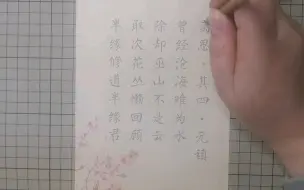 离思·其四·元稹
曾经沧海难为水
除却巫山不是云
取次花丛懒回顾
半缘修道半缘君